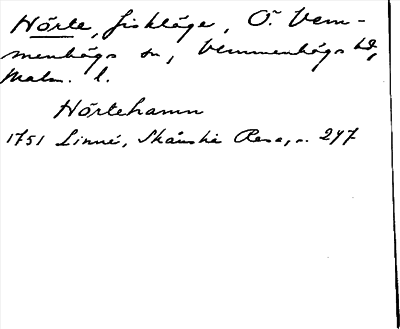 Hörte, fiskläge, Ö. Vem-
menhögs sn, Vemmenhögs hd,
Malm. l.
Hörtehamn
1751 Linné, Skånska Resa, s. 247